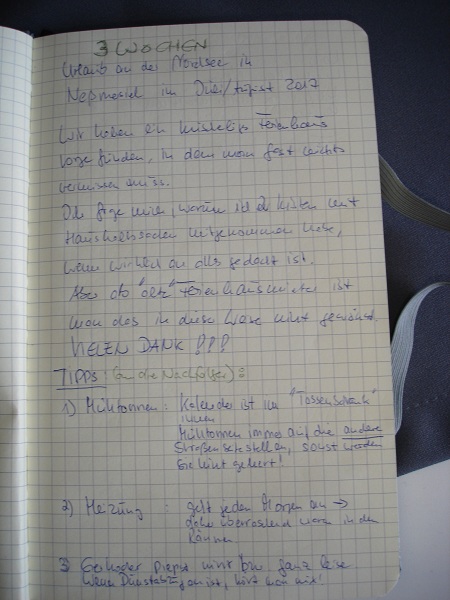 3 WOCHEN
Urlaub an der Nordsee in
Nepmersiel im Juli/August 2017
Wir haben ein Ferienhaus
vorgefunden, in dem man fast nichts
vermissen muss.
Ich frage mich, warum ich 2 Kisten mit
Haushaltssachen mitgenommen habe,
wenn wirklich an alles gedacht ist.
Aber als "alte" Ferienhausmieter ist
man das in dieser Weise nicht gewöhnt.
VIELEN DANK !!!
TIPPS: (an die Nachfolger):
1) Mülltonnen: Kalender ist im "Tassenschrank"
innen
Mülltonnen immer auf die andere
Straßenseite stellen, sonst werden
sie nicht geleert!
2) Heizung: geht jeden Morgen an →
daher überraschend warm in den
Räumen
3) piepst nicht bzw. ganz leise
Wenn Dunstabzug an ist, hört man nix!